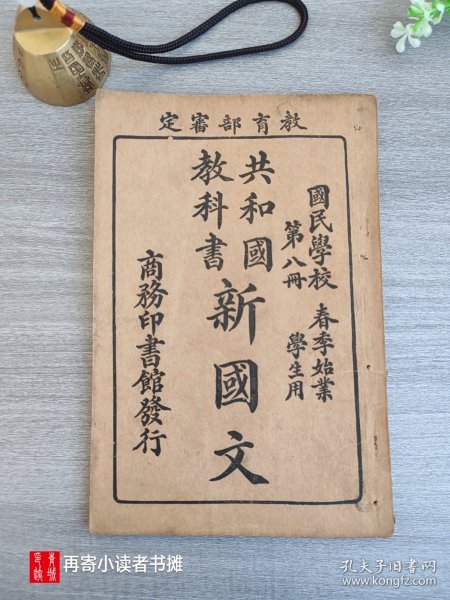 教育部審定
國民學校 春季始業
第八冊 學生用
共和國
教科書
新國文
商務印書館發行
再寄小读者书摊
孔夫子旧书网
www.kongfz.com